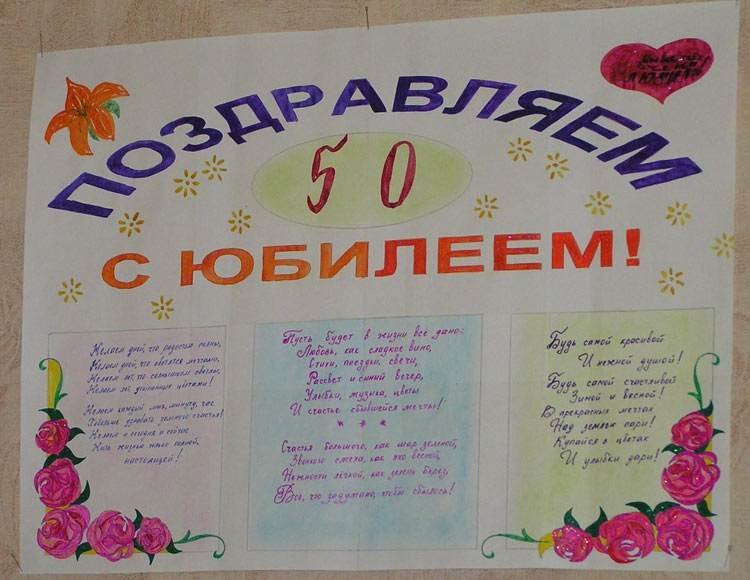 ПОЗДРАВЛЯЕМ
50
С ЮБИЛЕЕМ!
Желаем дней, что радостью полны,
Желаем дней, что светятся мечтами,
Желаем лет, что
Желаем лет, цветами!
Желаем каждый миг, минуту, час
Тебе земного счастья!
Желаем и сегодня и сейчас
Жить жизнью полной,
настоящей!
Пусть будет в жизни всё дано:
Любовь, как сладкое вино,
Стихи, поездки, свечи,
Рассвет и синий вечер,
Улыбки, музыка, цветы
И счастье сбывшейся мечты!
* * *
Счастья большого, как шар земной,
Звонкого смеха, как эхо весной,
Нежности лёгкой, как зелень берёз,
Всё, что задумано, чтобы сбылось!
Будь самой красивой
И нежной душой!
Будь самой счастливой
Зимой и весной!
В прекрасных мечтах
Над землею пари!
Купайся в цветах
И улыбки дари!